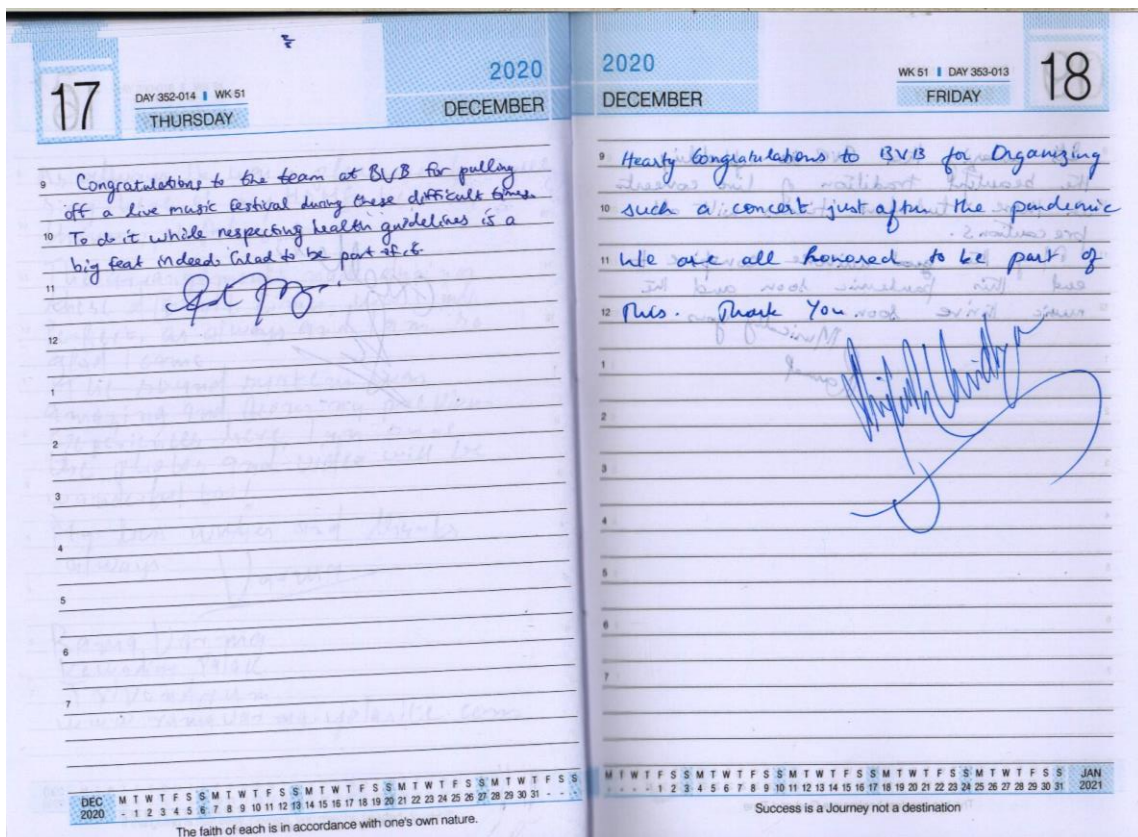 17
DAY 352-014 | WK 51
THURSDAY
2020
DECEMBER
9 Congratulations to the team at BVB for pulling
off a live music festival during these difficult times.
10 To do it while respecting health guidelines is a
big feat indeed. Glad to be part of it.
11
12
1
2
3
4
5
6
7
DEC
2020
M T W T F S S M T W T F S S M T W T F S S M T W T F S S M T W T F S S
- 1 2 3 4 5 6 7 8 9 10 11 12 13 14 15 16 17 18 19 20 21 22 23 24 25 26 27 28 29 30 31 - - -
The faith of each is in accordance with one's own nature.
2020
DECEMBER
WK 51 | DAY 353-013
FRIDAY
18
9 Hearty Congratulations to BVB for Organizing
10 such a concert just after the pandemic
11 We are all honored to be part of
12 this. Thank You
1
2
3
4
5
6
7
M T W T F S S M T W T F S S M T W T F S S M T W T F S S M T W T F S S
- - - - 1 2 3 4 5 6 7 8 9 10 11 12 13 14 15 16 17 18 19 20 21 22 23 24 25 26 27 28 29 30 31
JAN
2021
Success is a Journey not a destination